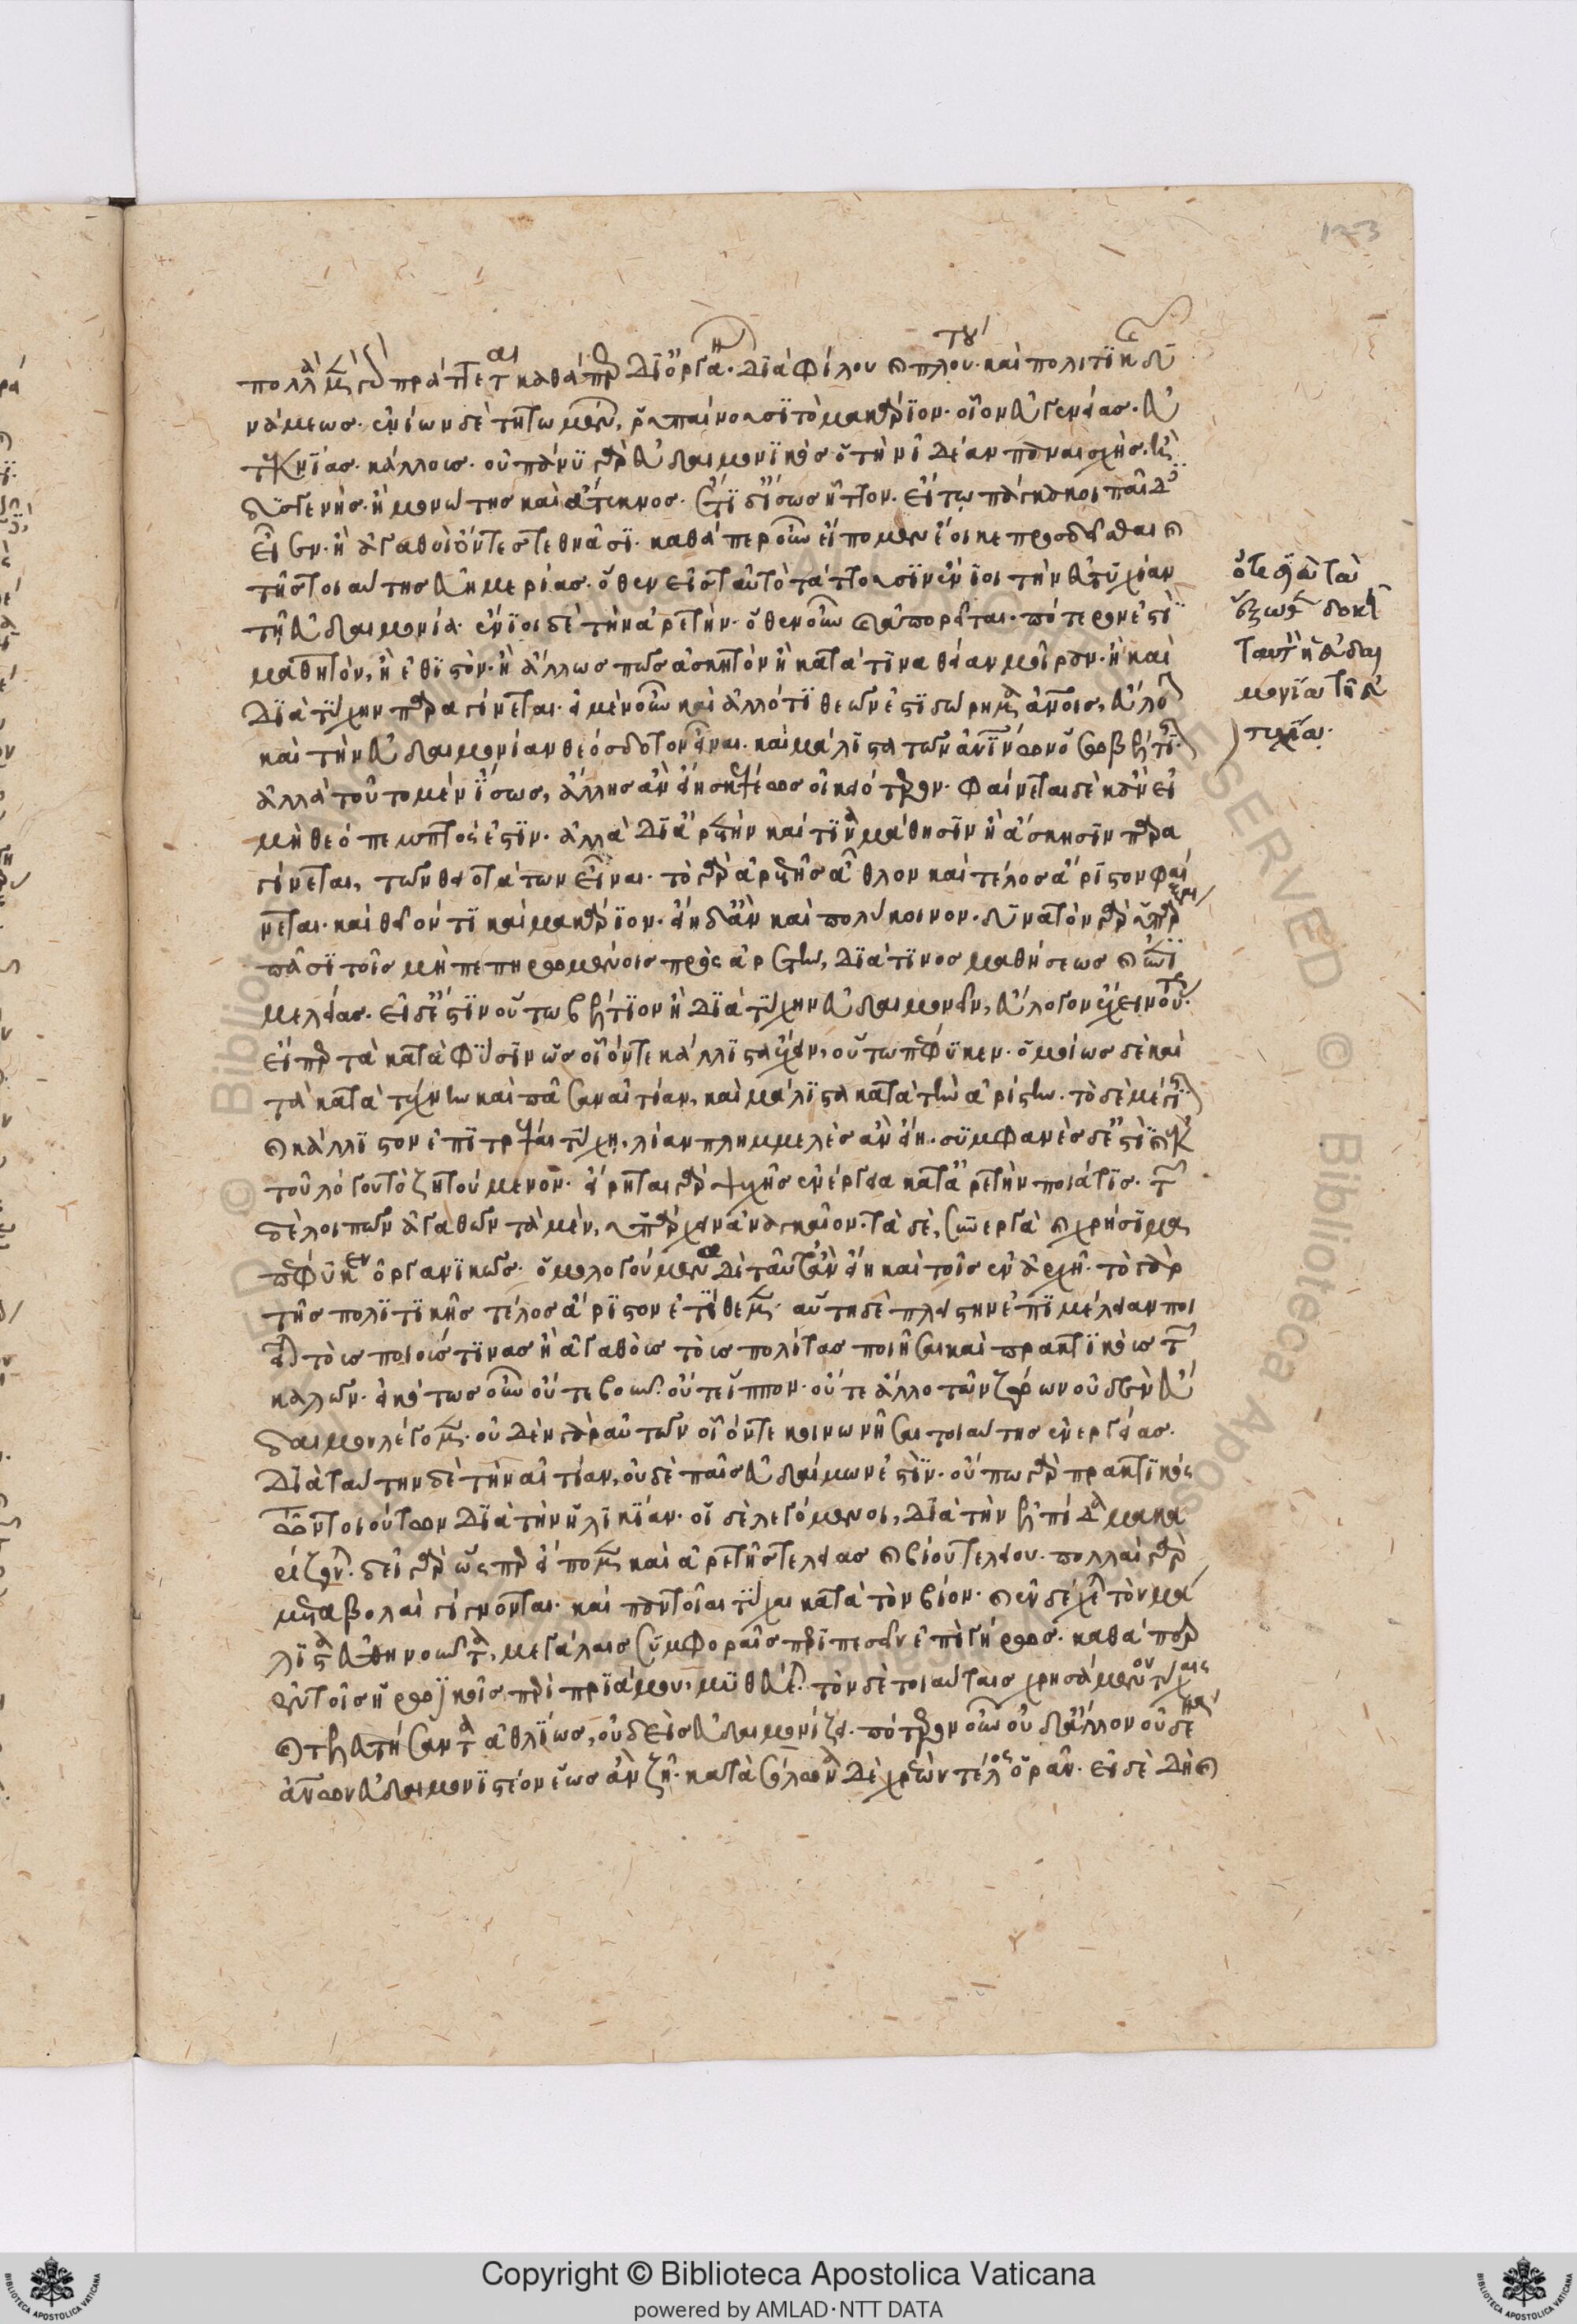 πολλὰ μὲν γὰρ πράττεται καθάπερ δι' ὀργάνων. διὰ φίλου καὶ πλούτου. καὶ πολιτικῆς δυ
νάμεως. ἐνίων δὲ τητώμενοι, ῥυπαίνουσι τὸ μακάριον. οἷον εὐγενείας. εὐ
τεκνίας. κάλλους. οὐ πάνυ γὰρ εὐδαιμονικὸς ὁ τὴν ἰδέαν παναισχὴς. ἢ
δυσγενὴς. ἢ μονώτης καὶ ἄτεκνος. ἔτι δ' ἴσως ἧττον. εἴ τῳ πάγκακοι παῖδες
εἶεν. ἢ ἀγαθοὶ ὄντες τεθνᾶσι. καθάπερ οὖν εἴπομεν ἔοικε προσδεῖσθαι καὶ
τῆς τοιαύτης εὐημερίας. ὅθεν εἰς ταὐτὸ τάττουσιν ἔνιοι τὴν εὐτυχίαν
τῇ εὐδαιμονίᾳ. ἔνιοι δὲ τὴν ἀρετήν. ὅθεν οὖν καὶ ἀπορεῖται. πότερόν ἐστι
μαθητὸν, ἢ ἐθιστὸν. ἢ ἄλλως πως ἀσκητὸν ἢ κατά τινα θείαν μοῖραν. ἢ καὶ
διὰ τύχην παραγίνεται. εἰ μὲν οὖν καὶ ἄλλό τι θεῶν ἐστι δώρημα ἀνοις, εὔλογον
καὶ τὴν εὐδαιμονίαν θεόσδοτον εἶναι. καὶ μάλιστα τῶν ἀνίνων ὅσω βέλτιστον.
ἀλλὰ τοῦτο μὲν ἴσως, ἄλλης ἂν εἴη σκέψεως οἰκειότερον. φαίνεται δὲ κἂν εἰ
μὴ θεόπεμπτός ἐστιν. ἀλλὰ δι' ἀρετὴν καί τινα μάθησιν ἢ ἄσκησιν παρα
γίνεται, τῶν θειοτάτων εἶναι. τὸ γὰρ ἀρετῆς ἆθλον καὶ τέλος ἄριστον φαί
νεται. καὶ θεῖόν τι καὶ μακάριον. εἴη δ' ἂν καὶ πολύκοινον. δυνατὸν γὰρ ὑπάρξαι
πᾶσι τοῖς μὴ πεπηρωμένοις πρὸς ἀρετὴν, διά τινος μαθήσεως καὶ ἐπι
μελείας. εἰ δ' ἐστὶν οὕτω βέλτιον ἢ διὰ τύχην εὐδαιμονεῖν, εὔλογον ἔχειν οὕτως.
εἴπερ τὰ κατὰ φύσιν ὡς οἷόν τε κάλλιστα ἔχειν, οὕτω πέφυκεν. ὁμοίως δὲ καὶ
τὰ κατὰ τέχνην καὶ πᾶσαν αἰτίαν, καὶ μάλιστα κατὰ τὴν ἀρίστην. τὸ δὲ μέγιστον
καὶ κάλλιστον ἐπιτρέψαι τύχῃ, λίαν πλημμελὲς ἂν εἴη. συμφανὲς δ' ἐστὶ καὶ ἐκ
τοῦ λόγου τὸ ζητούμενον. εἴρηται γὰρ ψυχῆς ἐνέργεια κατ' ἀρετὴν ποιά τις. τῶν
δὲ λοιπῶν ἀγαθῶν τὰ μὲν, ὑπάρχειν ἀναγκαῖον. τὰ δὲ, συνεργὰ καὶ χρήσιμα
πέφυκεν ὀργανικῶς. ὁμολογούμενα δὲ ταῦτ' ἂν εἴη καὶ τοῖς ἐν ἀρχῇ. τὸ γὰρ
τῆς πολιτικῆς τέλος ἄριστον ἐτίθεμεν. αὕτη δὲ πλείστην ἐπιμέλειαν ποι
εῖται τοῦ ποιούς τινας ἢ ἀγαθοὺς τοὺς πολίτας ποιῆσαι καὶ πρακτικοὺς τῶν
καλῶν. εἰκότως οὖν οὔτε βοῦν. οὔτε ἵππον. οὔτε ἄλλο τῶν ζώων οὐδὲν εὔ
δαιμον λέγομεν. οὐδὲν γὰρ αὐτῶν οἷόν τε κοινωνῆσαι τοιαύτης ἐνεργείας.
διὰ ταύτην δὲ τὴν αἰτίαν, οὐδὲ παῖς εὐδαίμων ἐστίν. οὔπω γὰρ πρακτικὸς
τῶν τοιούτων διὰ τὴν ἡλικίαν. οἱ δὲ λεγόμενοι, διὰ τὴν ἐλπίδα μακα
ρίζονται. δεῖ γὰρ ὥσπερ εἴπομεν καὶ ἀρετῆς τελείας καὶ βίου τελείου. πολλαὶ γὰρ
μεταβολαὶ γίγνονται. καὶ παντοῖαι τύχαι κατὰ τὸν βίον. καὶ ἐνδέχεται τὸν μά
λιστα εὐθηνοῦντα, μεγάλαις συμφοραῖς περιπεσεῖν ἐπὶ γήρως. καθάπερ
ἐν τοῖς ἡρωϊκοῖς περὶ πριάμου, μυθεύεται. τὸν δὲ τοιαύταις χρησάμενον τύχαις
καὶ τελευτήσαντα ἀθλίως, οὐδεὶς εὐδαιμονίζει. πότερον οὖν οὐδ' ἄλλον οὐδένα
ἀνων εὐδαιμονιστέον ἕως ἂν ζῇ. κατὰ σόλωνα δὲ χρεὼν τέλος ὁρᾶν. εἰ δὲ δὴ καὶ
ἔξωθεν δοκεῖ
ταὐτὴ ἡ εὐδαι
μονία τῆ εὐ
τυχία.